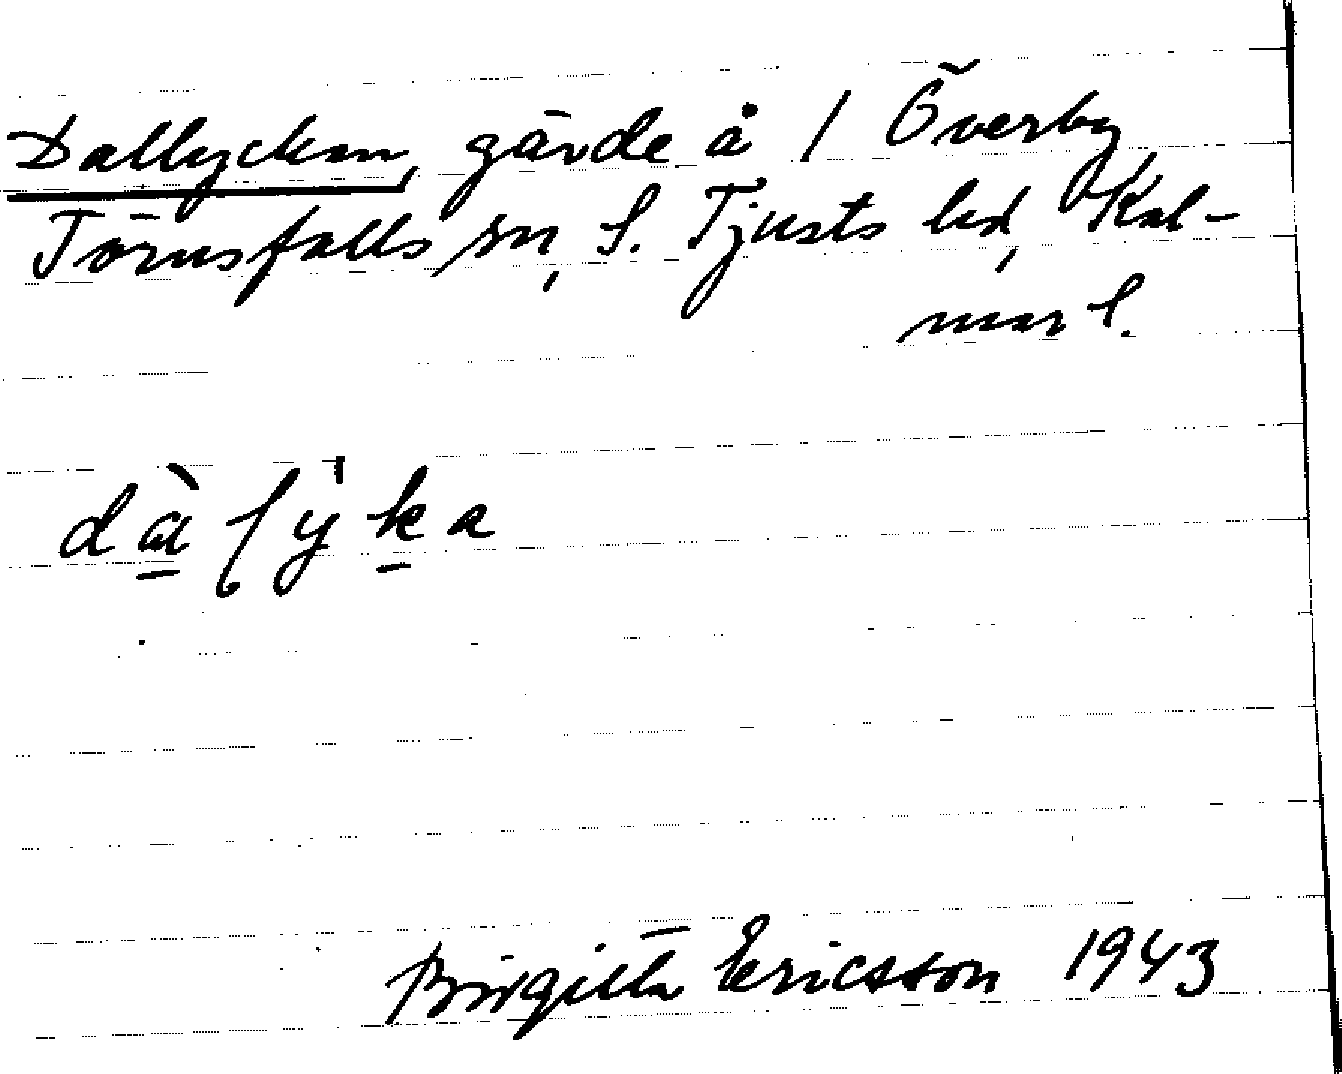 Dallyckan, gärde å 1 Överby
Törnsfalls sn, S. Tjusts hd, Kal-
mar l.
dàlýka
Birgitta Ericsson 1943